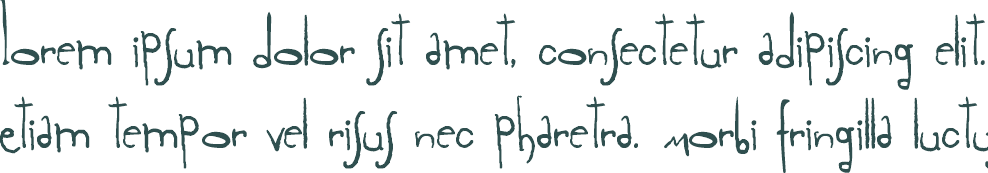 lorem ipsum dolor sit amet, consectetur adipiscing elit.
etiam tempor vel risus nec pharetra. morbi fringilla luctu